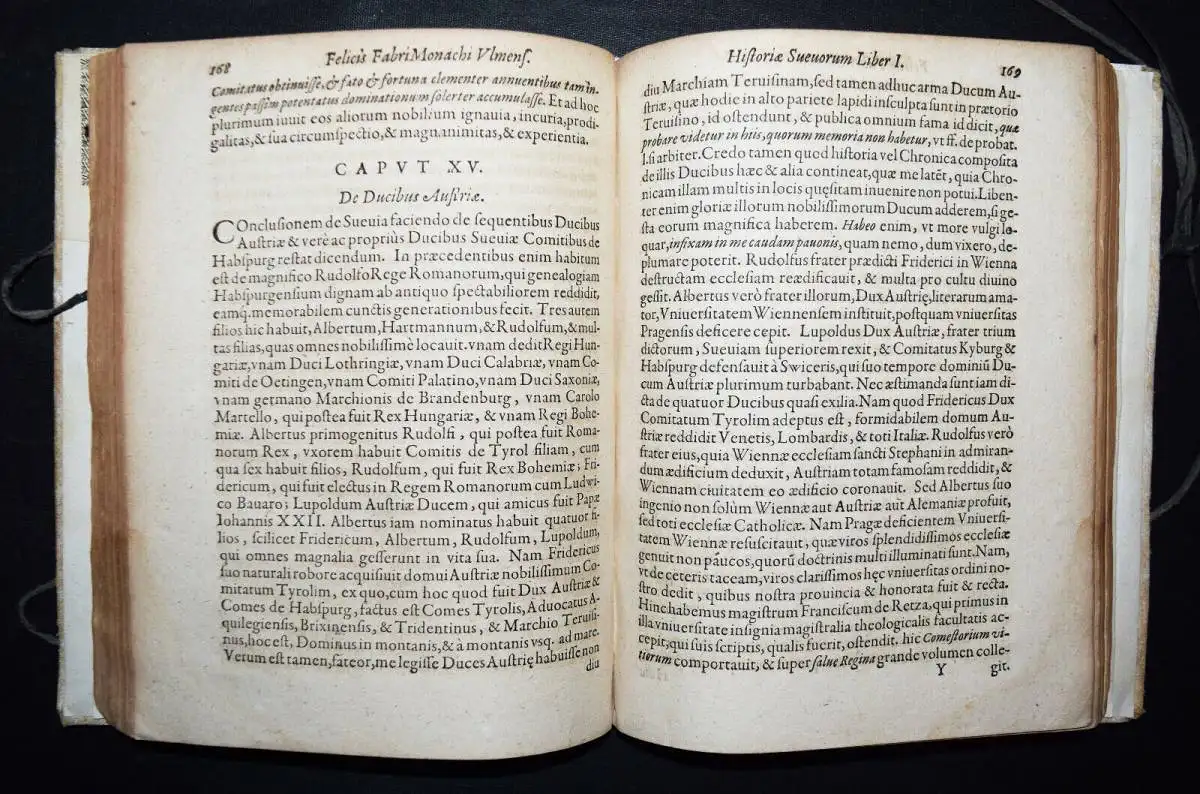 168
Felicis Fabri Monachi Vlmenſ.
Comitatus obtinuiſſe, & fato & fortuna clementer annuentibus tam in-
gentes paſſim potentatus dominationum ſolerter accumulaſſe. Et ad hoc
plurimum iuuit eos aliorum nobilium ignauia, incuria, prodi-
galitas, & ſua circumſpectio, & magnanimitas, & experientia.
CAPVT XV.
De Ducibus Auſtriæ.
COncluſionem de Sueuia faciendo de ſequentibus Ducibus
Auſtriæ & verè ac propriùs Ducibus Sueuiæ Comitibus de
Habſpurg reſtat dicendum. In præcedentibus enim habitum
eſt de magnifico Rudolfo Rege Romanorum, qui genealogiam
Habſpurgenſium dignam ab antiquo ſpectabiliorem reddidit,
eamq; memorabilem cunctis generationibus fecit. Tres autem
filios hic habuit, Albertum, Hartmannum, & Rudolfum, & mul-
tas filias, quas omnes nobiliſſimè locauit. vnam dedit Regi Hun-
gariæ, vnam Duci Lothringiæ, vnam Duci Calabriæ, vnam Co-
miti de Oetingen, vnam Comiti Palatino, vnam Duci Saxoniæ,
vnam germano Marchionis de Brandenburg, vnam Carolo
Martello, qui poſtea fuit Rex Hungariæ, & vnam Regi Bohe-
miæ. Albertus primogenitus Rudolfi, qui poſtea fuit Roma-
norum Rex, vxorem habuit Comitis de Tyrol filiam, cum
qua ſex habuit filios, Rudolfum, qui fuit Rex Bohemiæ; Fri-
dericum, qui fuit electus in Regem Romanorum cum Ludwi-
co Bauaro; Lupoldum Auſtriæ Ducem, qui amicus fuit Papæ
Iohannis XXII. Albertus iam nominatus habuit quatuor fi-
lios, ſcilicet Fridericum, Albertum, Rudolfum, Lupoldum,
qui omnes magnalia geſſerunt in vita ſua. Nam Fridericus
ſuo naturali robore acquiſiuit domui Auſtriæ nobiliſſimum Co-
mitatum Tyrolim, ex quo, cum hoc quod fuit Dux Auſtriæ &
Comes de Habſpurg, factus eſt Comes Tyrolis, Aduocatus A-
quilegienſis, Brixinenſis, & Tridentinus, & Marchio Teruiſi-
nus, hoc eſt, Dominus in montanis, & à montanis vsq. ad mare.
Verum eſt tamen, fateor, me legiſſe Duces Auſtrię habuiſſe non
diu
Hiſtoriæ Sueuorum Liber I.
169
diu Marchiam Teruiſinam, ſed tamen adhuc arma Ducum Au-
ſtriæ, quæ hodie in alto pariete lapidi inſculpta ſunt in prætorio
Teruiſino, id oſtendunt, & publica omnium fama id dicit, quæ
probare videtur in htis, quorum memoria non habetur, vt ff. de probat.
l. ſi arbiter. Credo tamen quod hiſtoria vel Chronica compoſita
de illis Ducibus hæc & alia contineat, quæ me latēt, quia Chro-
nicam illam multis in locis quęſitam inuenire non potui. Liben-
ter enim gloriæ illorum nobiliſſimorum Ducum adderem, ſi ge-
ſta eorum magnifica haberem. Habeo enim, vt more vulgi lo-
quar, infixam in me caudam pauonis, quam nemo, dum vixero, de-
plumare poterit. Rudolfus frater prædicti Friderici in Wienna
deſtructam eccleſiam reædificauit, & multa pro cultu diuino
geſſit. Albertus verò frater illorum, Dux Auſtrię, literarum ama-
tor, Vniuerſitatem Wiennenſem inſtituit, poſtquam vniuerſitas
Pragenſis deficere cepit. Lupoldus Dux Auſtriæ, frater trium
dictorum, Sueuiam ſuperiorem rexit, & Comitatus Kyburg &
Habſpurg defenſauit à Swiceris, qui ſuo tempore dominiū Du-
cum Auſtriæ plurimum turbabant. Nec æſtimanda ſunt iam di-
cta de quatuor Ducibus quaſi exilia. Nam quod Fridericus Dux
Comitatum Tyrolim adeptus eſt, formidabilem domum Au-
ſtriæ reddidit Venetis, Lombardis, & toti Italiæ. Rudolfus verò
frater eius, quia Wiennæ eccleſiam ſancti Stephani in admiran-
dum ædificium deduxit, Auſtriam totam famoſam reddidit, &
Wiennam ciuitatem eo ædificio coronauit. Sed Albertus ſuo
ingenio non ſolùm Wiennæ aut Auſtriæ aut Alemaniæ profuit,
ſed toti eccleſiæ Catholicæ. Nam Pragæ deficientem Vniuerſi-
tatem Wiennæ reſuſcitauit, quæ viros ſplendidiſſimos eccleſiæ
genuit non paucos, quorū doctrinis multi illuminati ſunt. Nam,
vt de ceteris taceam, viros clariſſimos hęc vniuerſitas ordini no-
ſtro dedit, quibus noſtra prouincia & honorata fuit & recta.
Hinc habemus magiſtrum Franciſcum de Retza, qui primus in
illa vniuerſitate inſignia magiſtralia theologicalis facultatis ac-
cepit, qui ſuis ſcriptis, qualis fuerit, oſtendit. hic Comeſtorium vi-
tiorum comportauit, & ſuper ſalue Regina grande volumen colle-
Y
git.